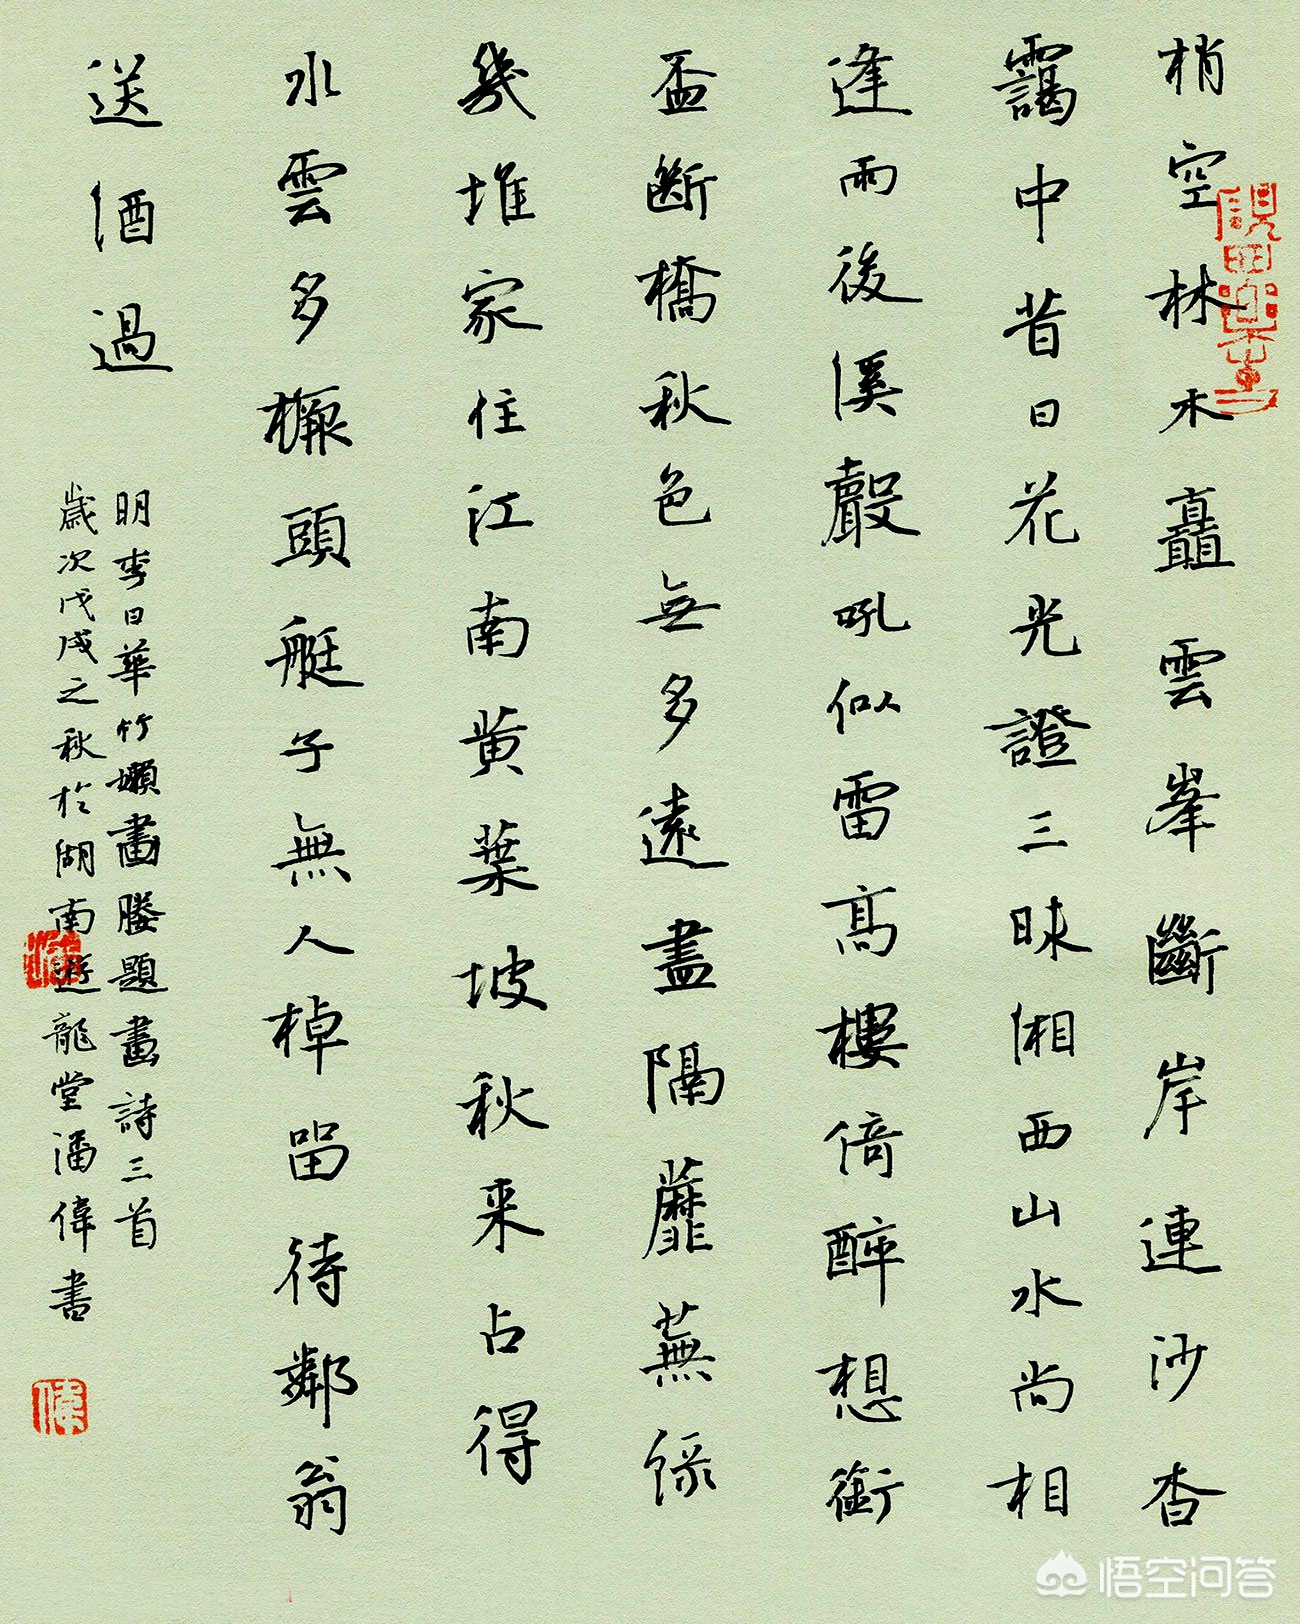 梢空林木矗雲峯斷岸連沙杳
靄中昔日花光證三昧湘西山水尚相
逢雨後溪聲吼似雷高樓倚醉想銜
盃斷橋秋色無多遠盡隔蘼蕪綠
幾堆家住江南黄葉坡秋来占得
水雲多橛頭艇子無人棹留待鄰翁
送酒過
明李日華竹嬾畫媵題畫詩三首
歲次戊戌之秋於湖南遊龍堂潘偉書
偉
悟空问答